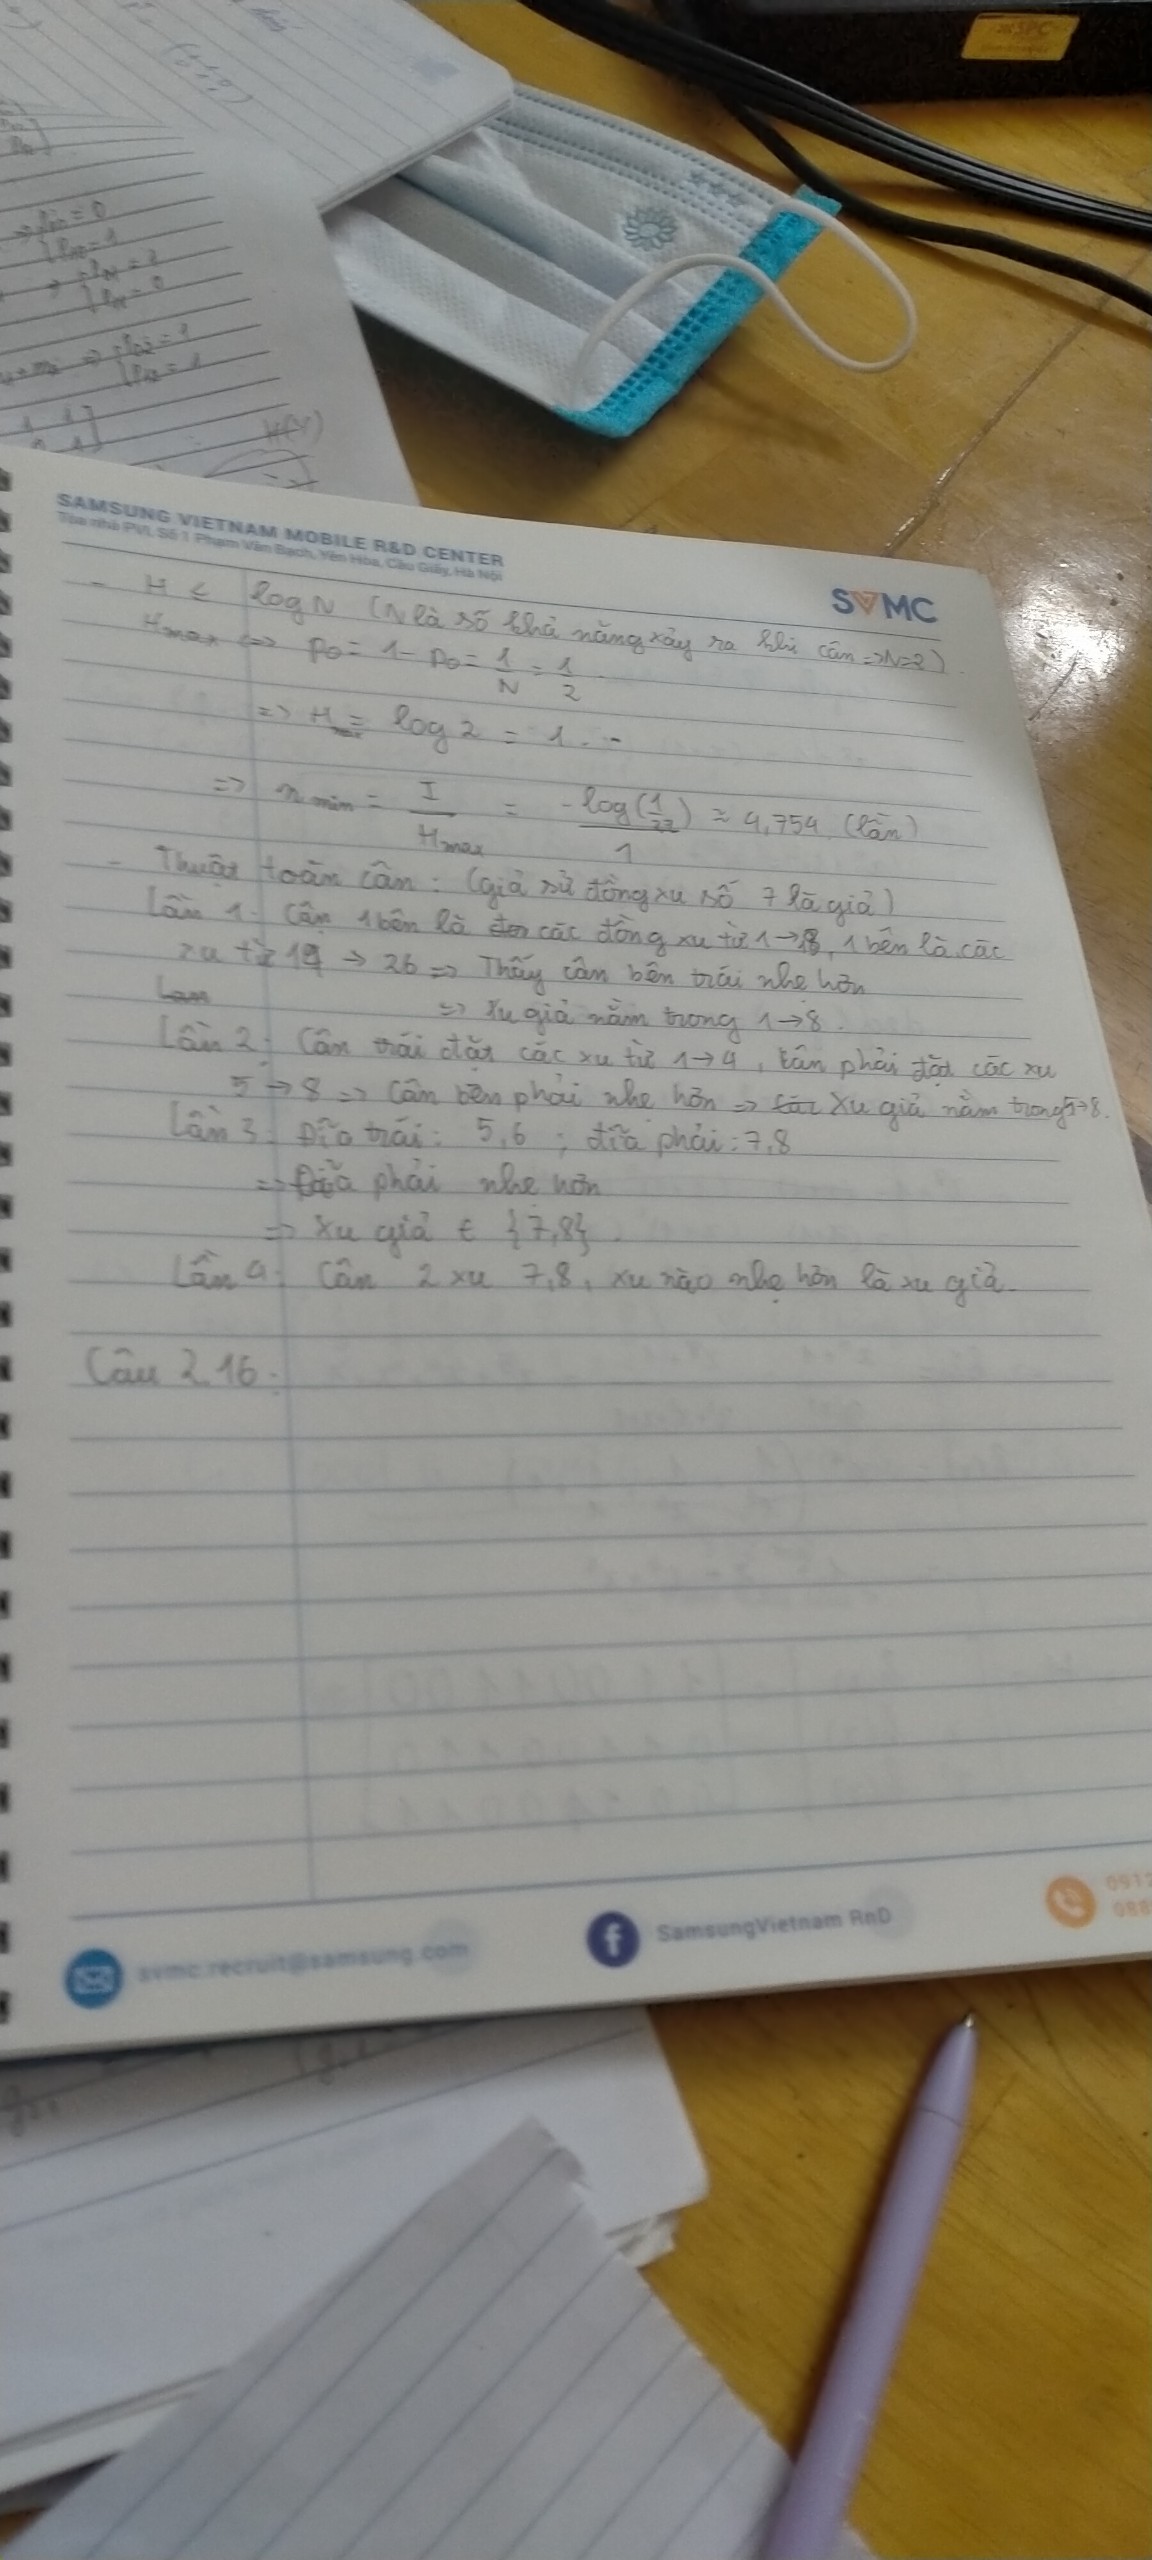 H(Y)
SAMSUNG VIETNAM MOBILE R&D CENTER
Tòa nhà PVI, Số 1 Phạm Văn Bạch, Yên Hòa, Cầu Giấy, Hà Nội
SVMC
- H ≤ log N (N là số khả năng xảy ra khi cân => N=2)
Hmax <=> p0 = 1 - p0 = 1/N = 1/2
=> Hmax = log 2 = 1
=> n min = I/Hmax = -log(1/27)/1 ≈ 4,754 (lần)
- Thuật toán cân: (giả sử đồng xu số 7 là giả)
Lần 1: Cân 1 bên là các đồng xu từ 1→8, 1 bên là các
xu từ 19 → 26 => Thấy cân bên trái nhẹ hơn
=> Xu giả nằm trong 1→8.
Lần 2: Cân trái đặt các xu từ 1→4, cân phải đặt các xu
5 → 8 => Cân bên phải nhẹ hơn => Xu giả nằm trong 5→8.
Lần 3: Đĩa trái: 5,6 ; đĩa phải: 7,8
=> Đĩa phải nhẹ hơn
=> Xu giả ∈ {7,8}.
Lần 4: Cân 2 xu 7,8, xu nào nhẹ hơn là xu giả.
Câu 2.16:
svmc.recruit@samsung.com
SamsungVietnam RnD